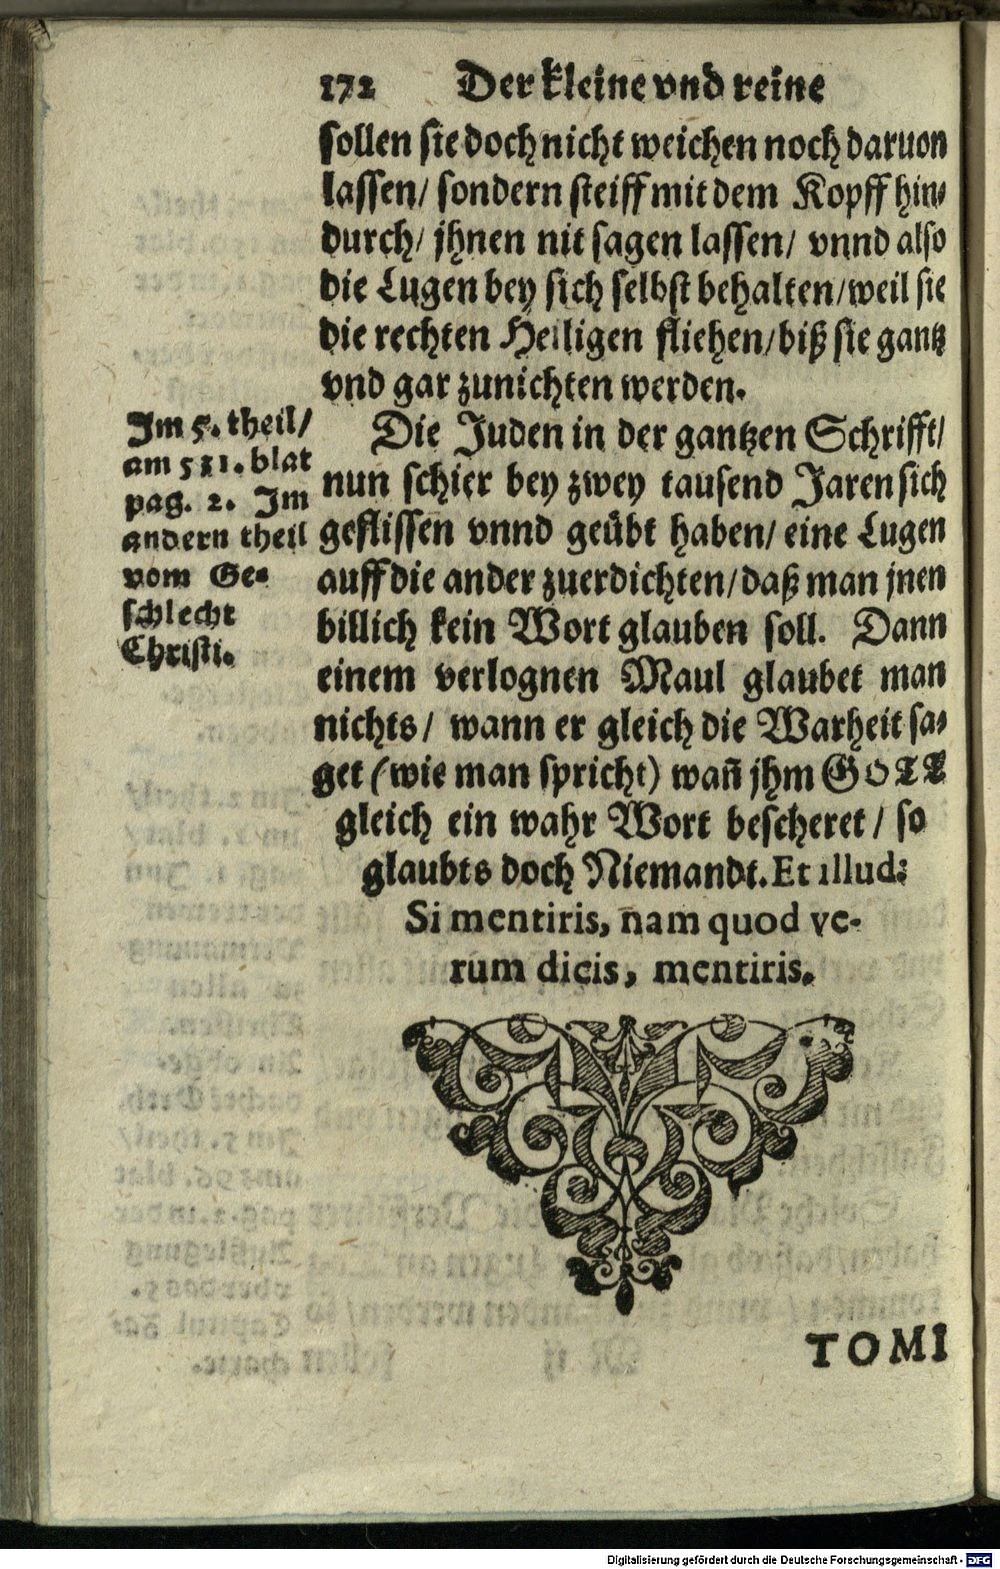 172 Der kleine vnd reine
sollen sie doch nicht weichen noch daruon
lassen/ sondern steiff mit dem Kopff hin-
durch/ jhnen nit sagen lassen/ vnnd also
die Lugen bey sich selbst behalten/ weil sie
die rechten Heiligen fliehen/ biß sie gantz
vnd gar zunichten werden.
Im 5. theil/
am 511. blat
pag. 2. Im
andern theil
vom Ge-
schlecht
Christi.
Die Juden in der gantzen Schrifft/
nun schier bey zwey tausend Jaren sich
geflissen vnnd geübt haben/ eine Lugen
auff die ander zuerdichten/ daß man jnen
billich kein Wort glauben soll. Dann
einem verlognen Maul glaubet man
nichts/ wann er gleich die Warheit sa-
get (wie man spricht) wañ jhm GOTT
gleich ein wahr Wort bescheret/ so
glaubts doch Niemandt. Et illud:
Si mentiris, nam quod ve-
rum dicis, mentiris.
TOMI
Digitalisierung gefördert durch die Deutsche Forschungsgemeinschaft - DFG